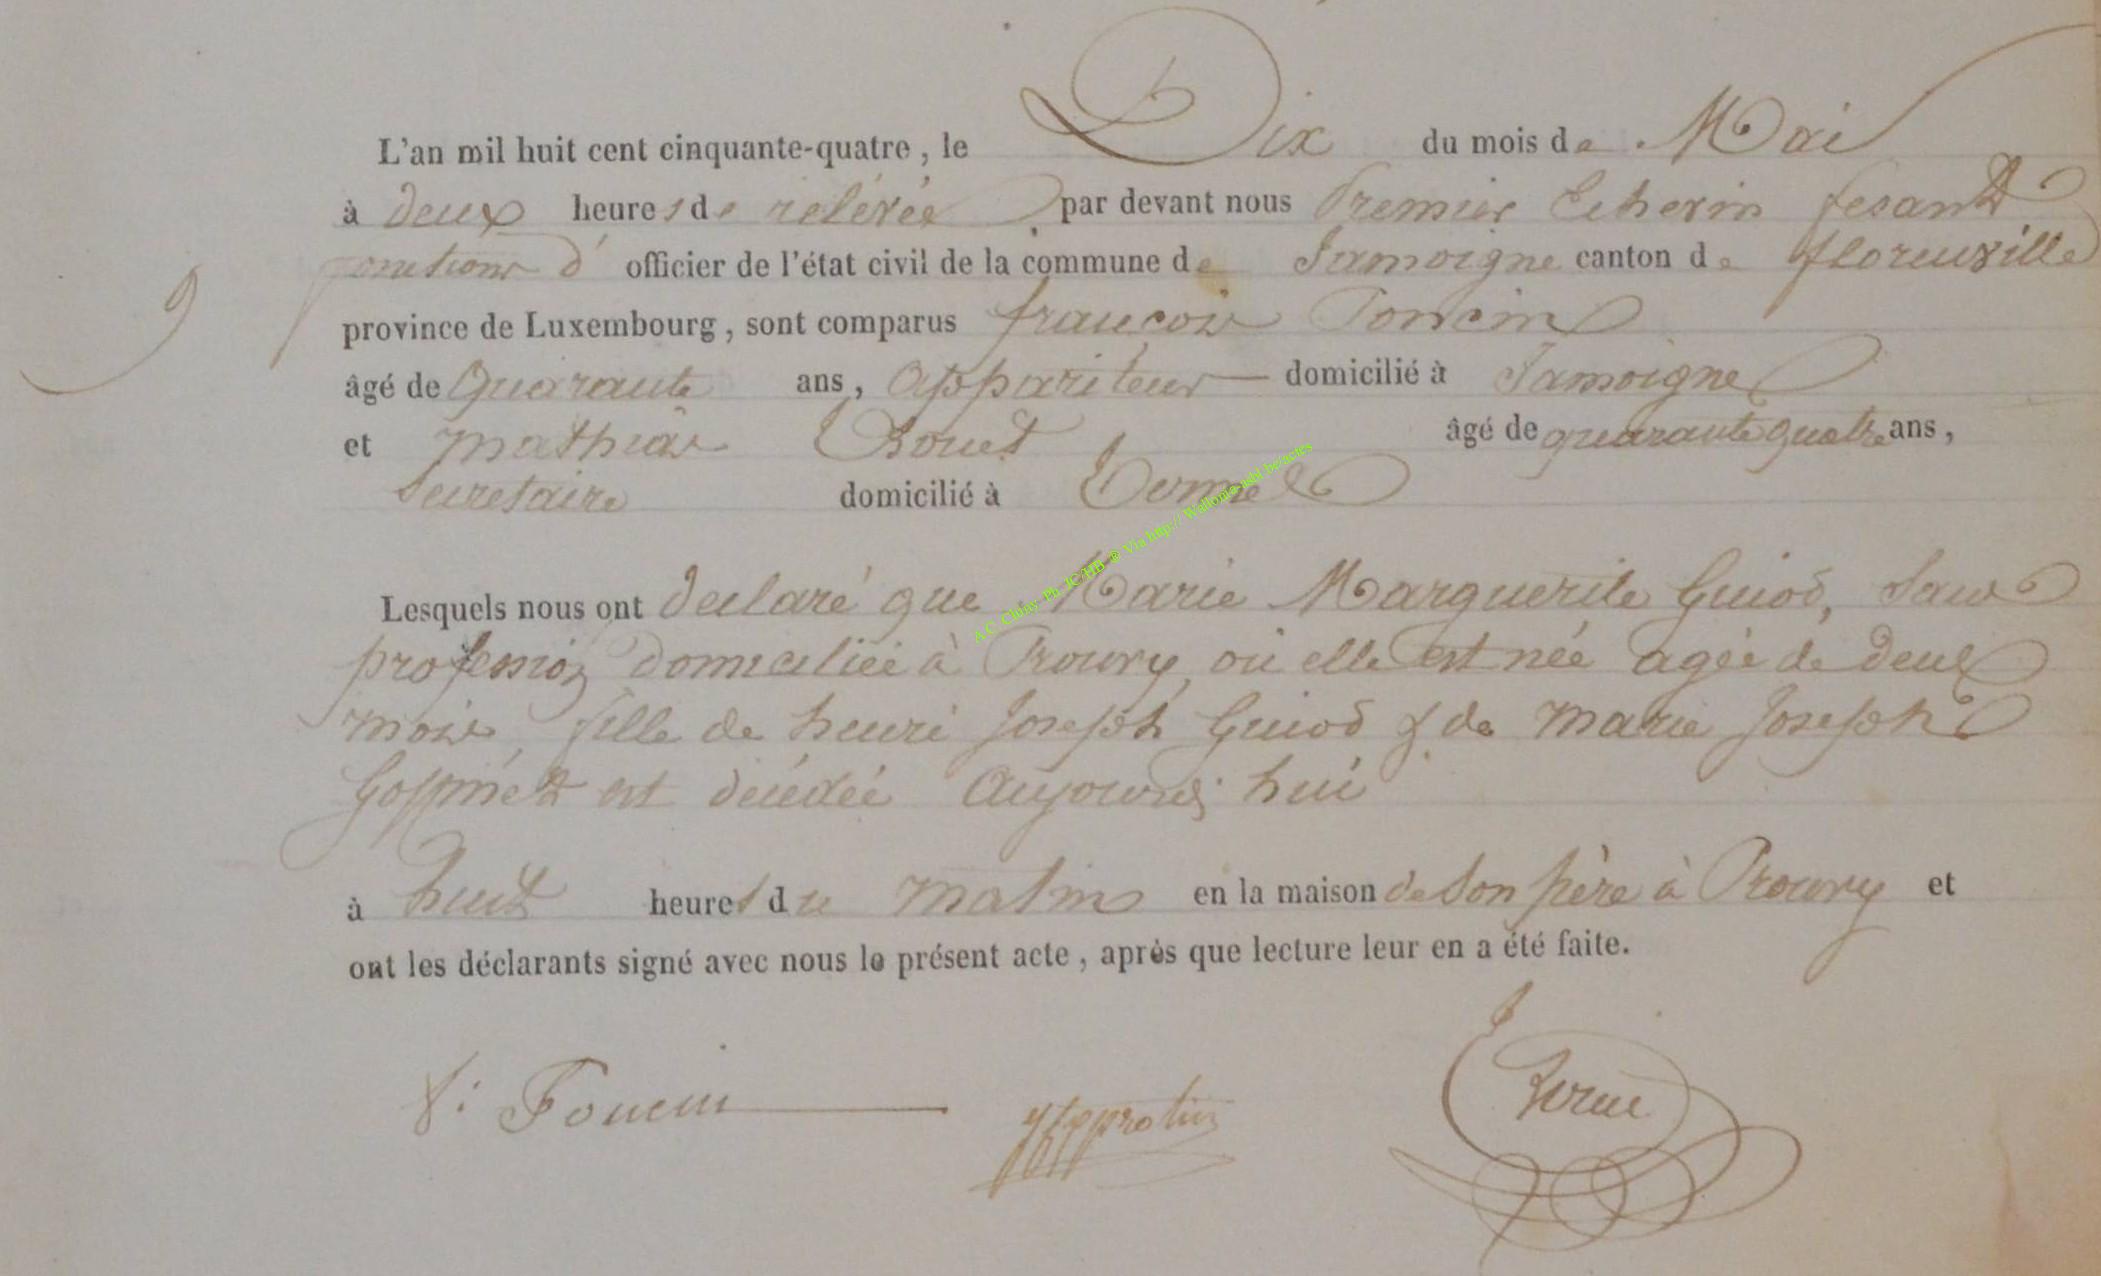 L'an mil huit cent cinquante-quatre, le Dix du mois de Mai
à deux heures de relévée par devant nous Premier Echevin fesant
fonctions d' officier de l'état civil de la commune de Jamoigne canton de florenville
province de Luxembourg, sont comparus françois Poncin
âgé de Quarante ans, Appariteur domicilié à Jamoigne
et Mathias âgé de quarante quatre ans,
Secretaire domicilié à
9
Lesquels nous ont declaré que Marie Marguerite Guiod, Sans
profession domiciliée à Prouvy, où elle est née agée de deux
mois, fille de henri Joseph Guiod & de Marie Joseph
est décédée Aujourd'hui
à huit heures du matin en la maison de Son père à Prouvy et
ont les déclarants signé avec nous le présent acte, après que lecture leur en a été faite.
A.C. Chiny Ph. JC/HB @ Via http://Wallonie-asbl.be/actes